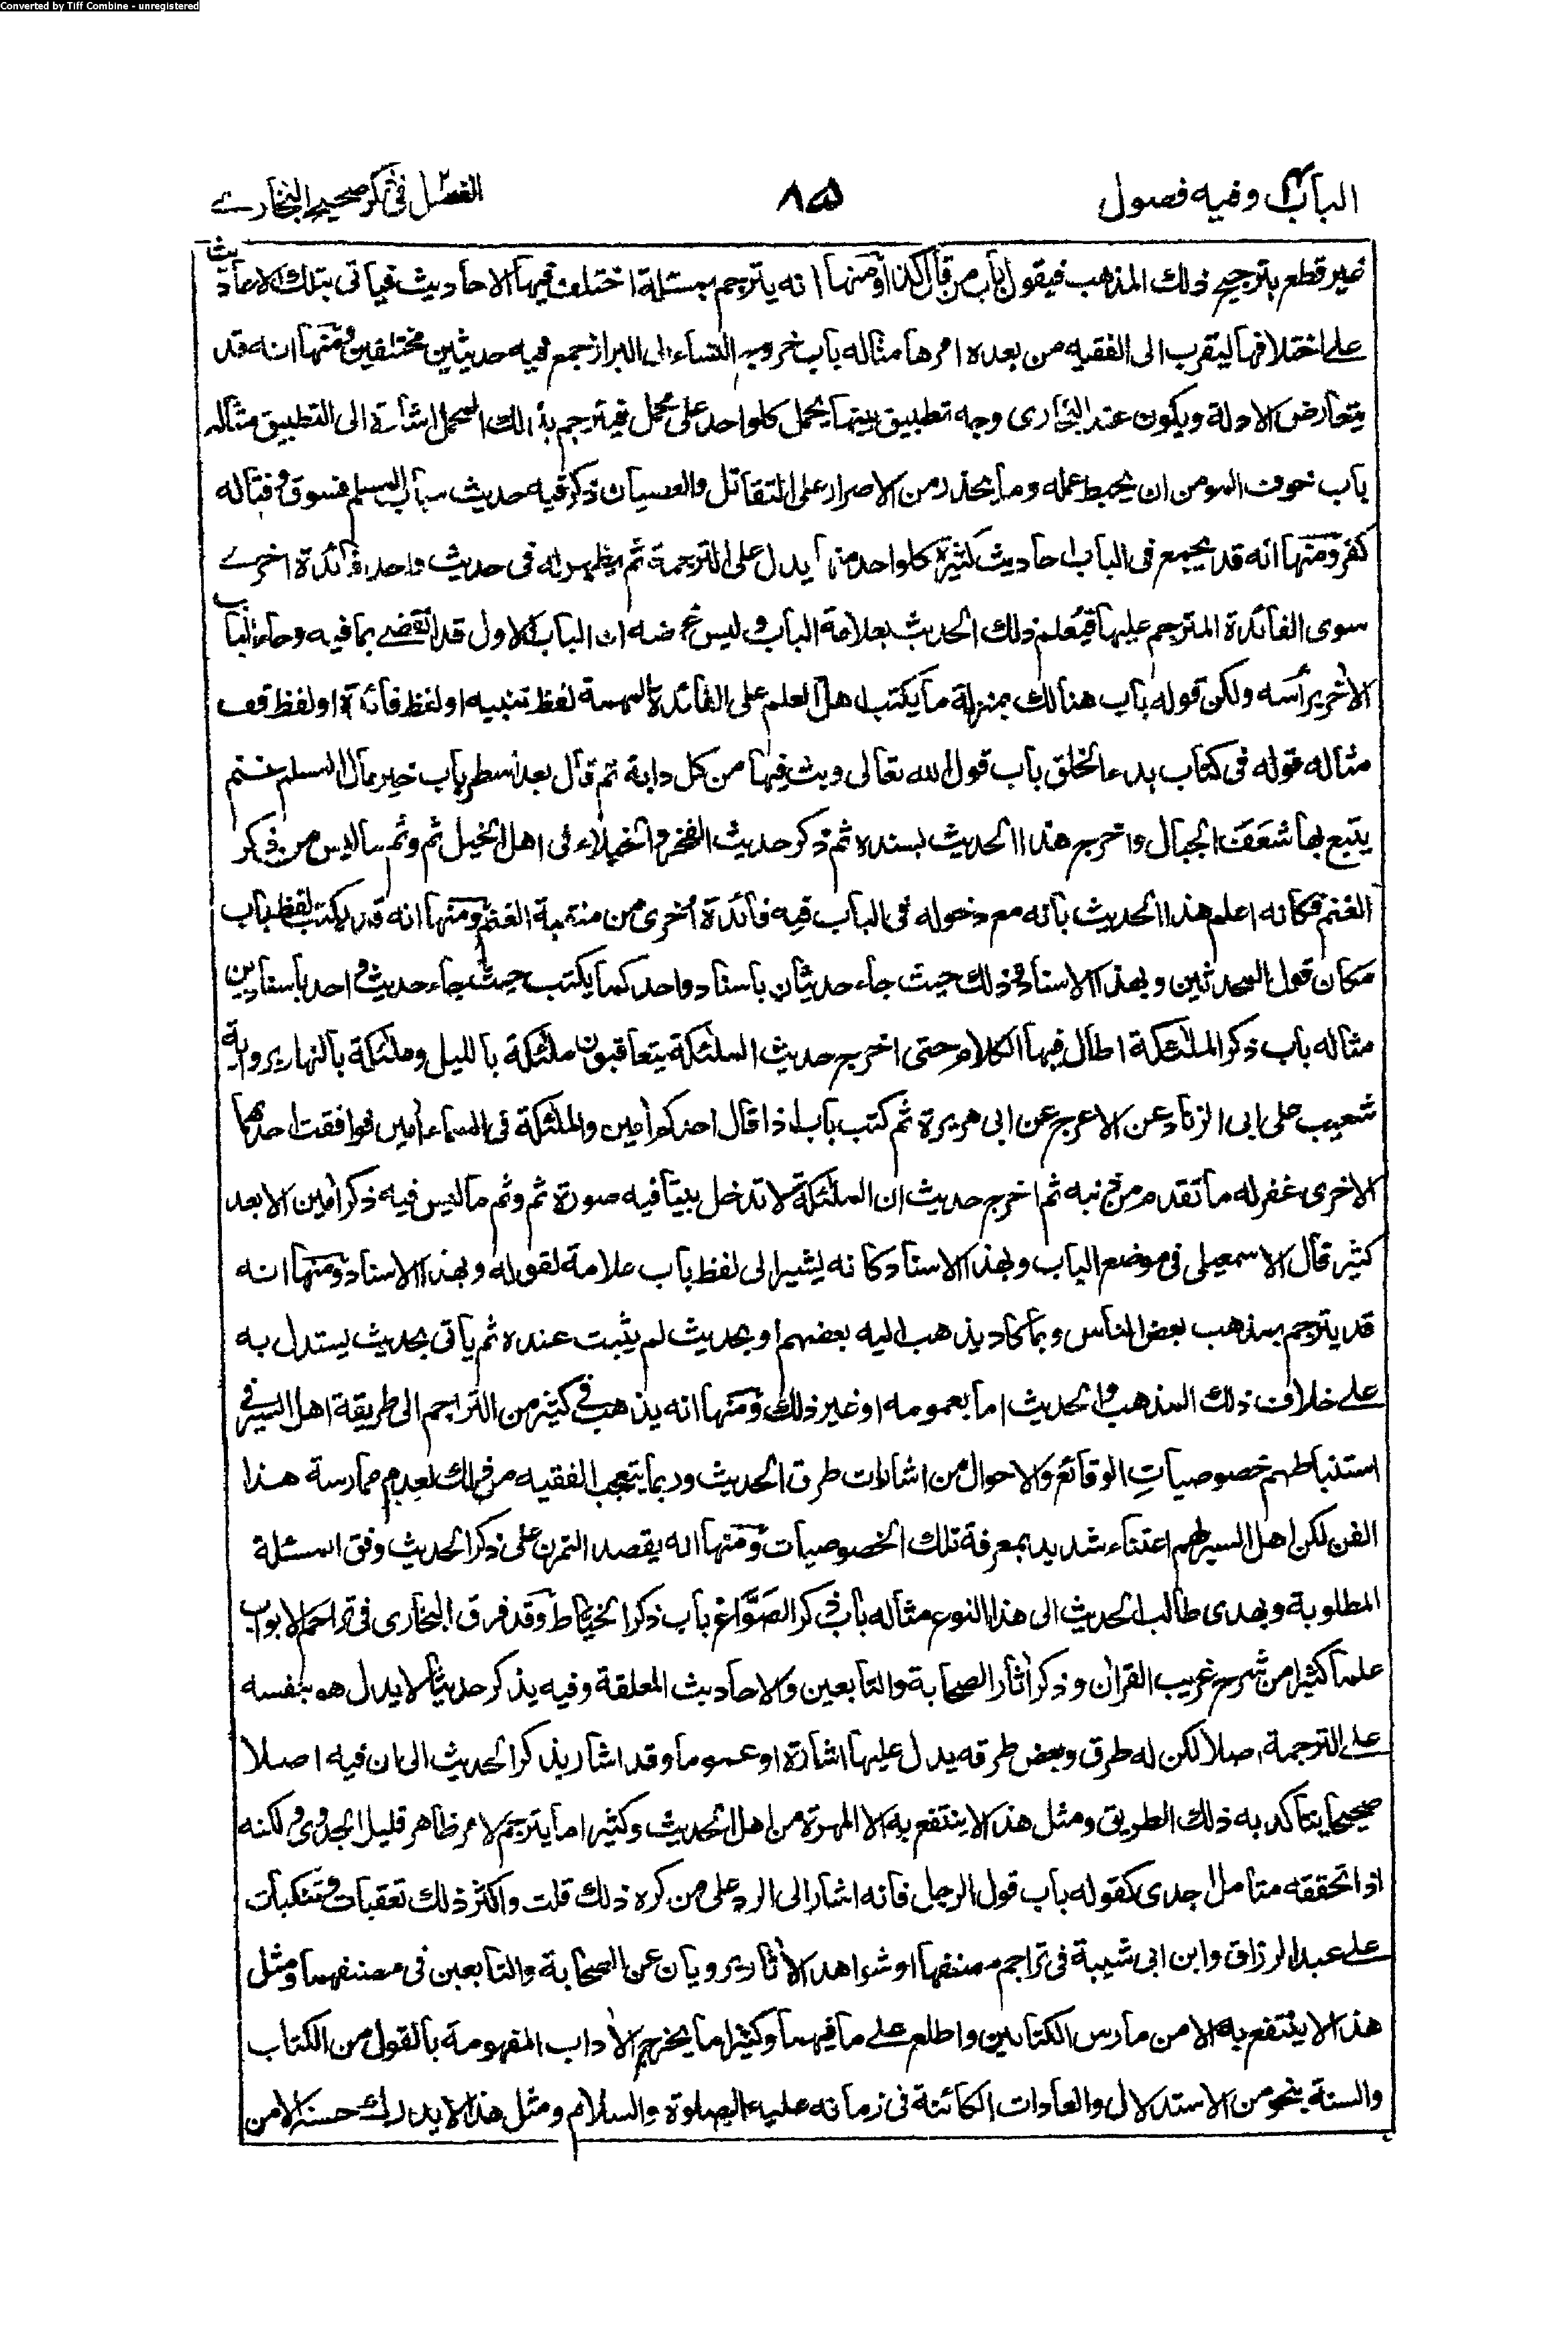 Converted by Tiff Combine - unregistered
الباب٤ وفيه فصول
٨٥
الفصل٢ في ذكر صحيح البخاري
غير قطع بترجيح ذلك المذهب فيقول باب من قال كذا ومنها انه يترجم بمسئلة اختلف فيها الاحاديث فياتى بتلك الاحاديث
على اختلافها ليقرب الى الفقيه من بعده امرها مثاله باب خروج النساء الى البراز جمع فيه حديثين مختلفين ومنها انه قد
يتعارض الادلة ويكون عند البخارى وجه تطبيق بينها يحمل كلواحد على محمل فيترجم بذلك المحمل اشارة الى التطبيق مثاله
باب خوف المومن ان يحبط عمله وما يحذر من الاصرار على التقاتل والعصيان ذكر فيه حديث سباب المسلم فسوق وقتاله
كفر ومنها انه قد يجمع فى الباب احاديث كثيرة كلواحد منها يدل على الترجمة ثم يظهر له فى حديث واحد فائدة اخرى
سوى الفائدة المترجم عليها فيعلم ذلك الحديث بعلامة الباب وليس غرضه ان الباب الاول قد انقضى بما فيه وجاء الباب
الاخر برأسه ولكن قوله باب هنالك بمنزلة ما يكتب اهل العلم على الفائدة المهمة لفظ تنبيه او لفظ فائدة او لفظ قف
مثاله قوله فى كتاب بدء الخلق باب قول الله تعالى وبث فيها من كل دابة ثم قال بعد اسطر باب خير مال المسلم غنم
يتبع بها شعف الجبال واخرج هذا الحديث بسنده ثم ذكر حديث الفخر والخيلاء فى اهل الخيل ثم وثم ما ليس من ذكر
الغنم فكانه اعلم هذا الحديث بانه مع دخوله فى الباب فيه فائدة اخرى من منقبة الغنم ومنها انه قد يكتب لفظ باب
مكان قول المحدثين وبهذا الاسناد وذلك حيث جاء حديثان باسناد واحد كما يكتب حيث جاء حديث واحد باسنادين
مثاله باب ذكر الملئكة اطال فيها الكلام حتى اخرج حديث الملئكة يتعاقبون ملئكة بالليل وملئكة بالنهار برواية
شعيب على ابى الزناد عن الاعرج عن ابى هريرة ثم كتب باب اذا قال احدكم أمين والملئكة فى السماء أمين فوافقت احدهما
الاخرى غفر له ما تقدم من ذنبه ثم اخرج حديث ان الملئكة لا تدخل بيتا فيه صورة ثم وثم ما ليس فيه ذكر أمين الا بعد
كثير قال الاسمعيلى فى موضع الباب وبهذا الاسناد كانه يشير الى لفظ باب علامة لقوله وبهذا الاسناد ومنها انه
قد يترجم بمذهب بعض الناس وبما كاد يذهب اليه بعضهم او بحديث لم يثبت عنده ثم ياتى بحديث يستدل به
على خلاف ذلك المذهب والحديث اما بعمومه او غير ذلك ومنها انه يذهب فى كثير من التراجم الى طريقة اهل السير فى
استنباطهم خصوصيات الوقائع والاحوال من اشارات طرق الحديث وربما يتعجب الفقيه من ذلك لعدم ممارسة هذا
الفن لكن اهل السير لهم اعتناء شديد بمعرفة تلك الخصوصيات ومنها انه يقصد التمرن على ذكر الحديث وفق المسئلة
المطلوبة ويهدى طالب الحديث الى هذا النوع مثاله باب ذكر الصَّوَّاغ باب ذكر الخياط وقد فرق البخارى فى تراجم الابواب
علما كثيرا من شرح غريب القرأن وذكر أثار الصحابة والتابعين والاحاديث المعلقة وفيه يذكر حديثا لا يدل هو بنفسه
على الترجمة اصلا لكن له طرق وبعض طرقه يدل عليها اشارة او عموما وقد اشار بذكر الحديث الى ان فيه اصلا
صحيحا يتأكد به ذلك الطريق ومثل هذا لا ينتفع به الا المهرة من اهل الحديث وكثيرا ما يترجم لامر ظاهر قليل الجدوى ولكنه
اذا تحققه متامل اجدى كقوله باب قول الرجل فانه اشار الى الرد على من كره ذلك قلت واكثر ذلك تعقبات وتنكبات
على عبد الرزاق وابن ابى شيبة فى تراجم مصنفيهما او شواهد الأثار يرويان عن الصحابة والتابعين فى مصنفيهما ومثل
هذا لا ينتفع به الا من مارس الكتابين واطلع على ما فيهما وكثيرا ما يخرج الأداب المفهومة بالقول من الكتاب
والسنة بنحو من الاستدلال والعادات الكائنة فى زمانه عليه الصلوة والسلام ومثل هذا لا يدرك حسنه الا من